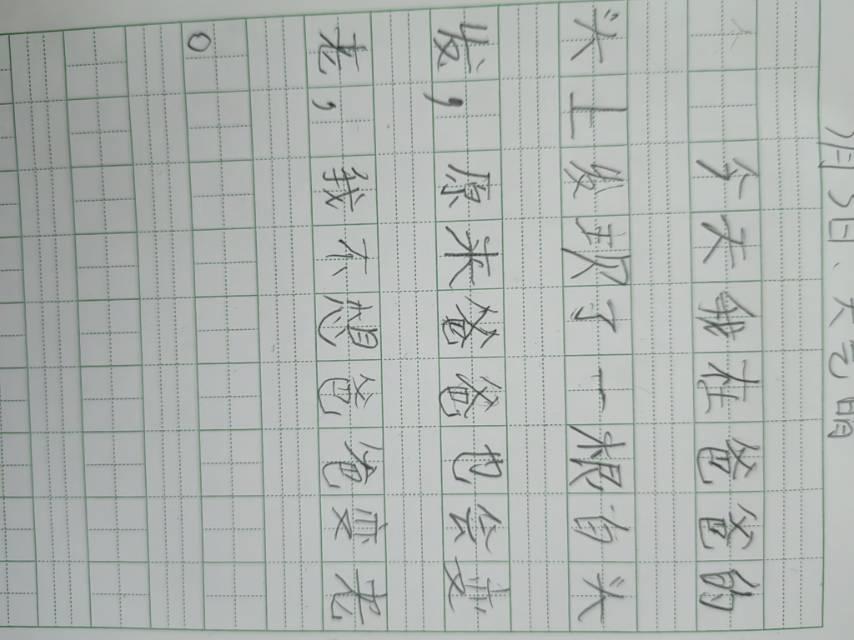 月3日、天气晴
今天我在爸爸的
头上发现了一根白头
发，原来爸爸也会变
老，我不想爸爸变老
。